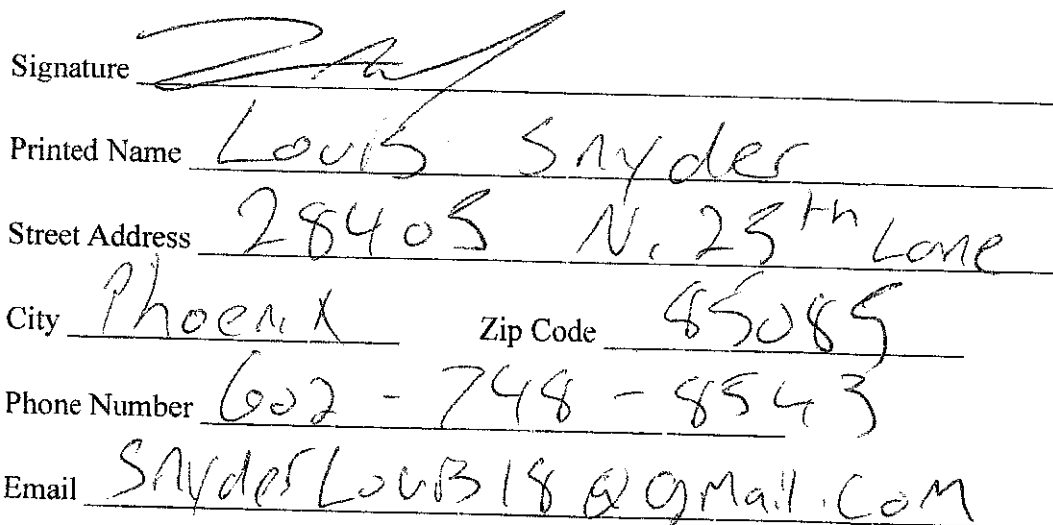 Signature
Printed Name Louis Snyder
Street Address 28405 N. 25th Lane
City Phoenix Zip Code 85085
Phone Number 602-748-8543
Email SnyderLouis18@gmail.com